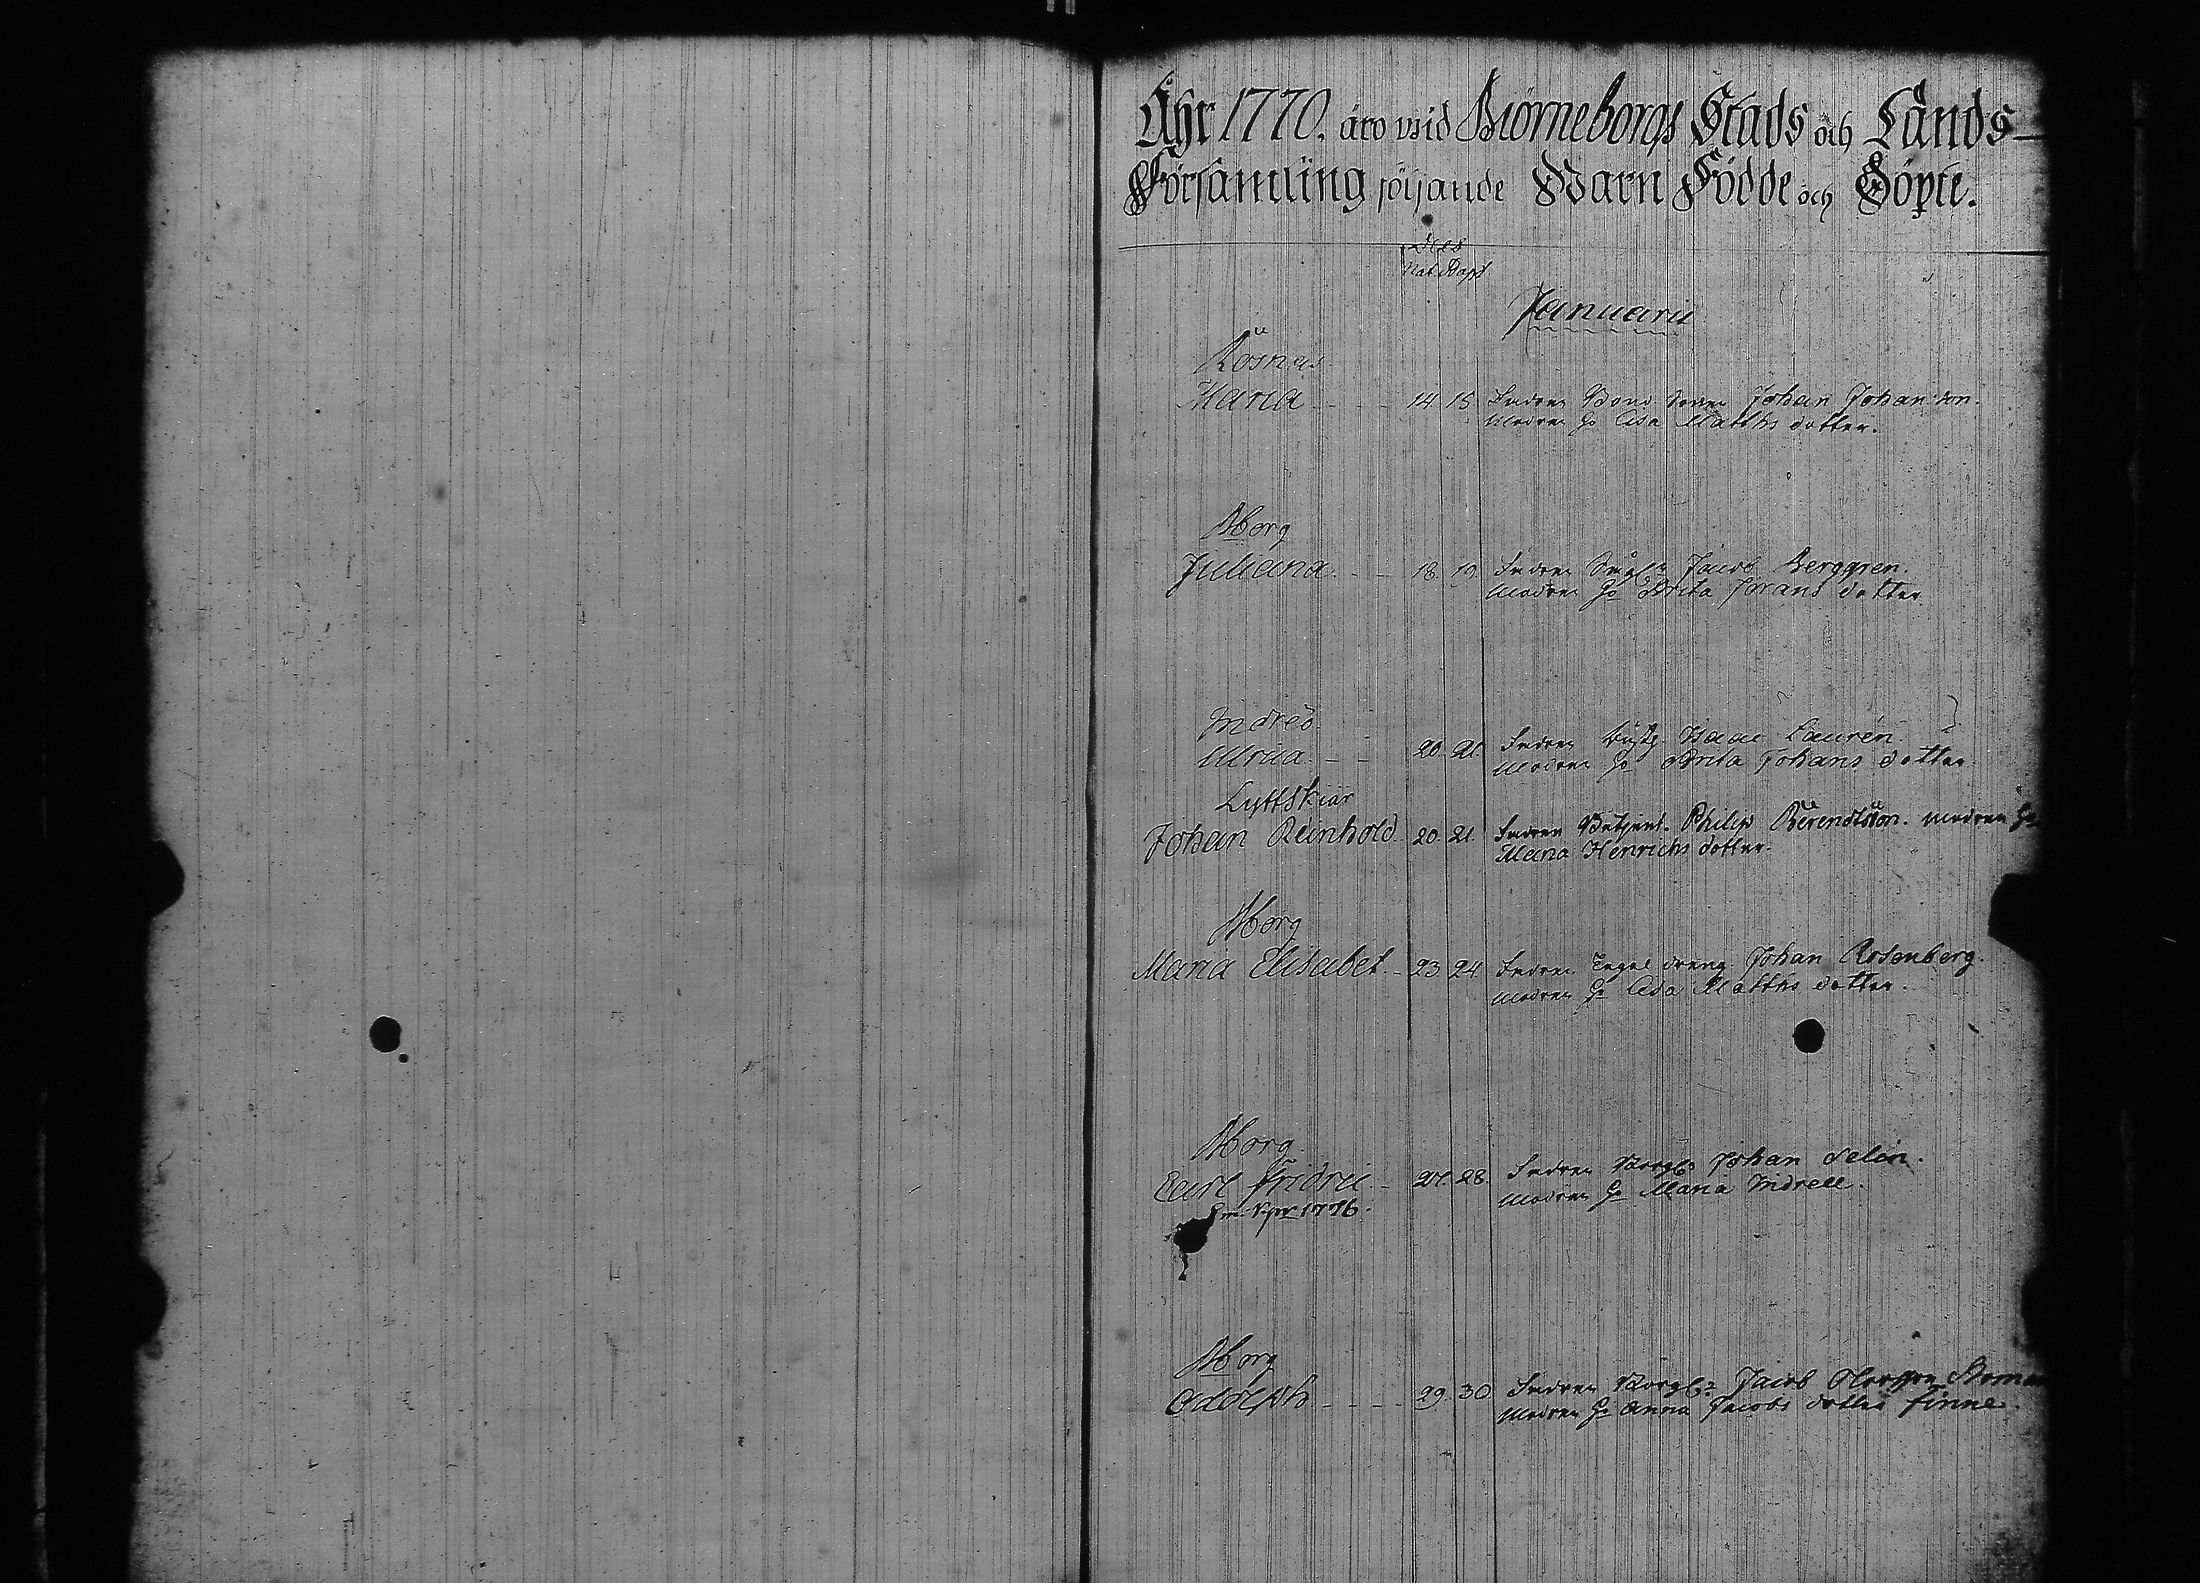 Åhr 1770. äro wid Biörneborgs Stads och Lands-
Församling följande Barn Födde och Döpte.
Dies
Nat. Bapt
Januarii
Rosnäs
Maria - - - 14. 15. Fadren Bond Sonen Johan Johansson.
Modren H: Lisa Matths dotter.
Bborg
Juliana. - - 18. 19. Fadren Jacob Berggren.
Modren H: Brita Jörans dotter
Inderö
Ulrica. - - 20. 21. Fadren Isaac Laurén.
Modren H: Brita Johans dotter
Lyttskiär
Johan Reinhold. 20. 21. Fadren Philip Berendtsson. Modren H:
Maria Henrichs dotter.
Bborg
Maria Elisabet. - 23. 24. Fadren Tegel dräng Johan Rosenberg.
Modren H: Lisa Matths dotter.
Bborg
Carl Fridric - 27. 28. Fadren Borg: Johan Selin.
Modren H: Maria Indrell.
1776.
Bborg
Adolph - - - - 29. 30. Fadren Borg: Jacob
Modren H: Anna Jacobs dotter Finne.